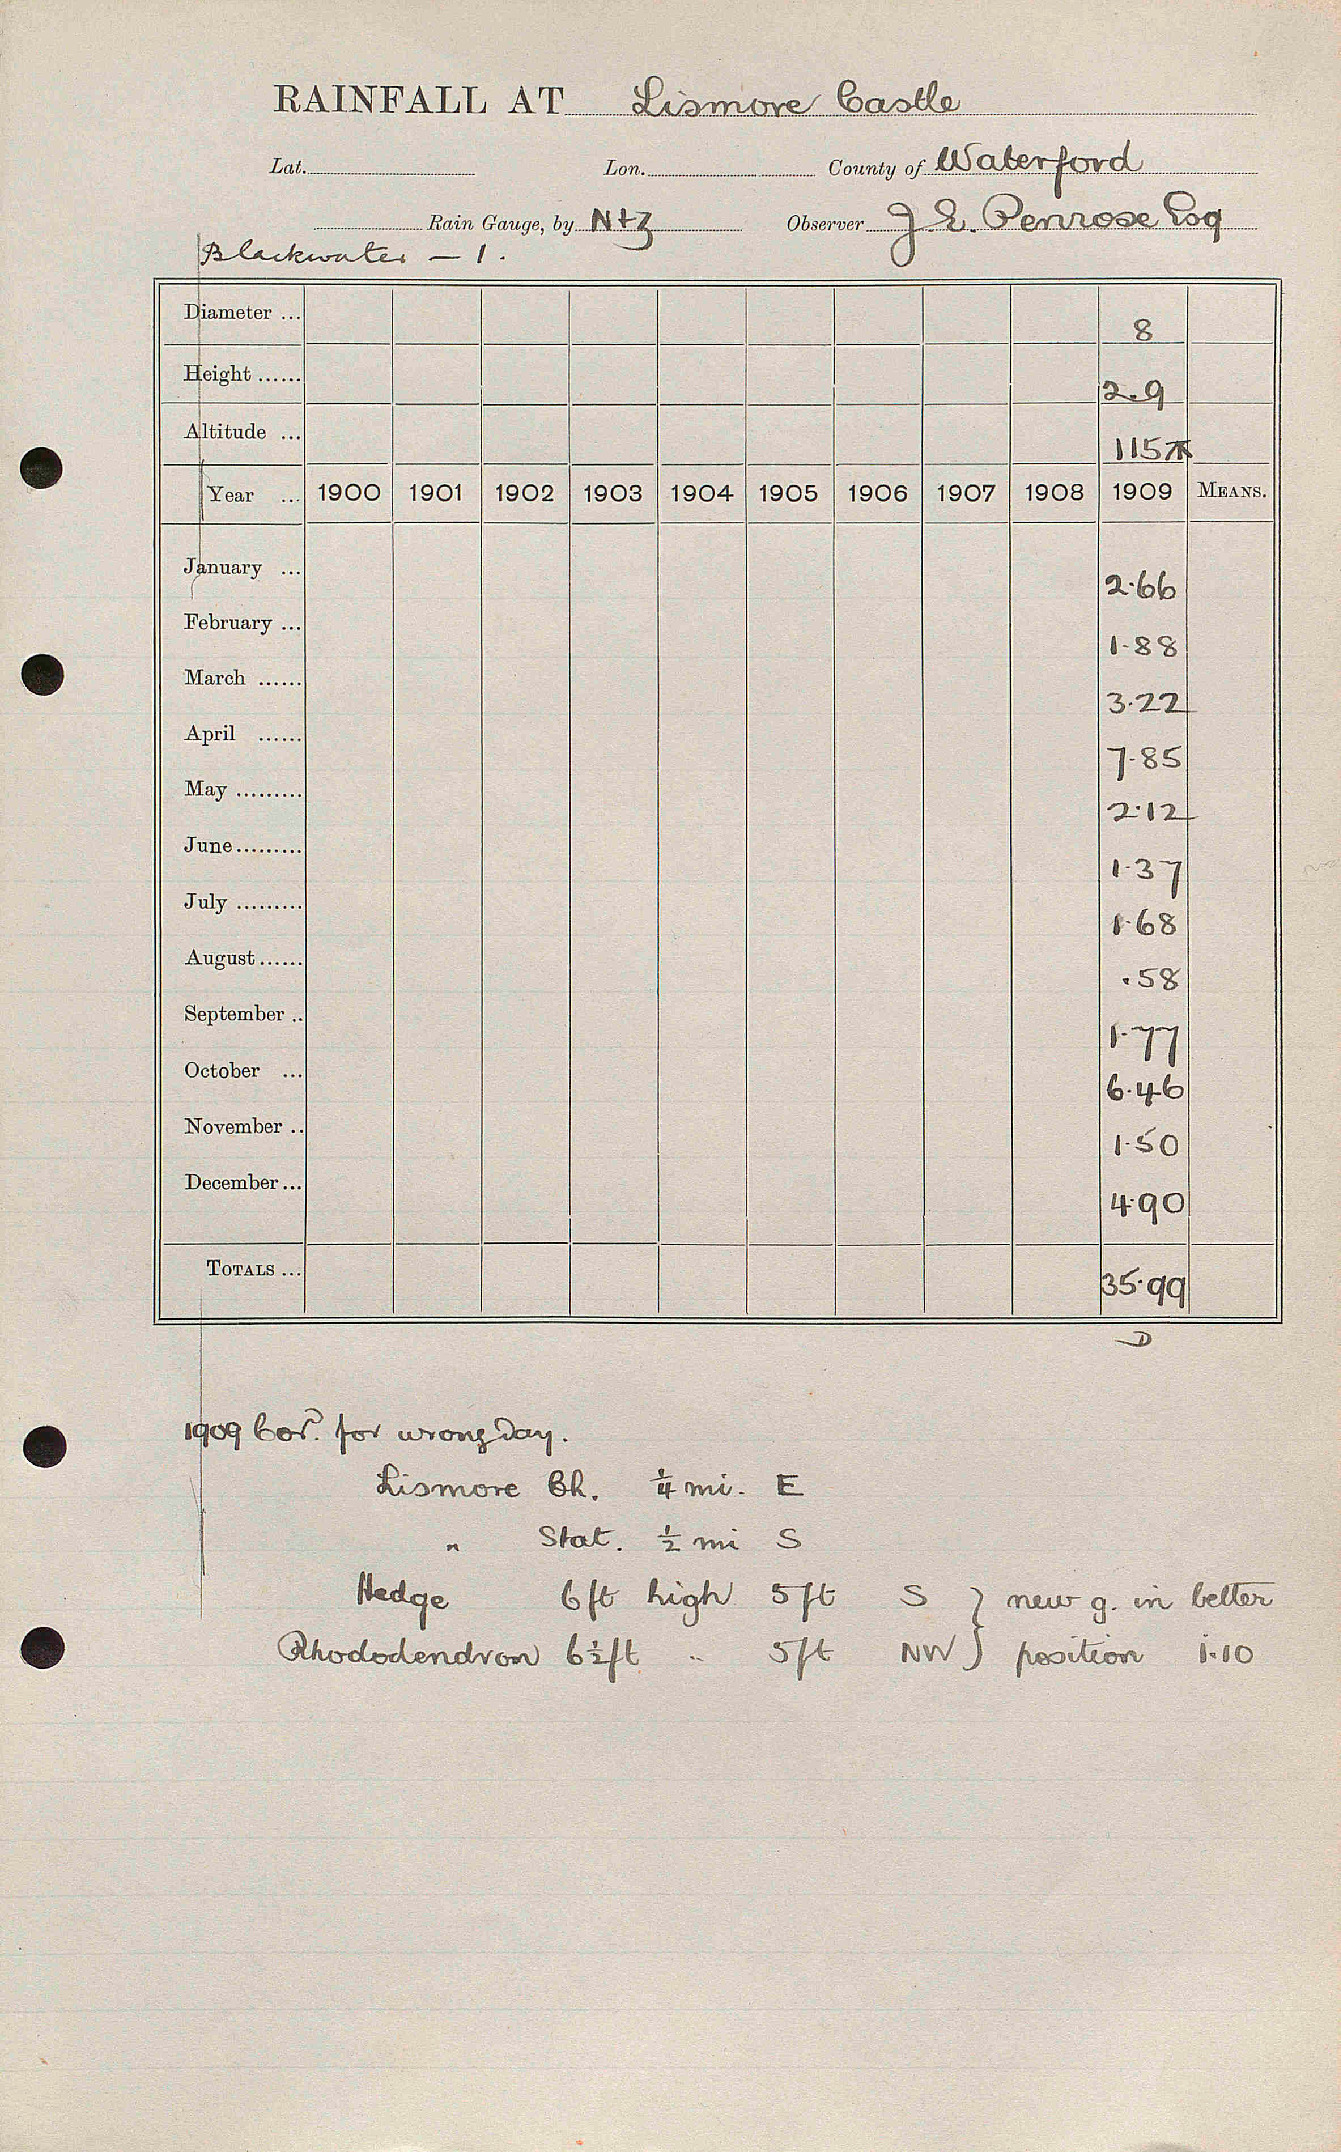 RAINFALL AT Lismore Castle
Lat. Lon. County of Waterford
Rain Gauge, by N+Z Observer J. E. Penrose Esq
Blackwater — 1.
Diameter ... 8
Height ...... 2.9
Altitude ... 115
Year ... 1900 1901 1902 1903 1904 1905 1906 1907 1908 1909 MEANS.
January ... 2.66
February ... 1.88
March ...... 3.22
April ...... 7.85
May ......... 2.12
June......... 1.37
July ......... 1.68
August...... .58
September .. 1.77
October ... 6.46
November .. 1.50
December... 4.90
TOTALS ... 35.99
D
1909 Cor. for wrong day.
Lismore Ch. ¼ mi. E
" Stat. ½ mi S
Hedge 6ft high 5ft S } new g. in better
Rhododendron 6½ft " 5ft NW } position 1.10